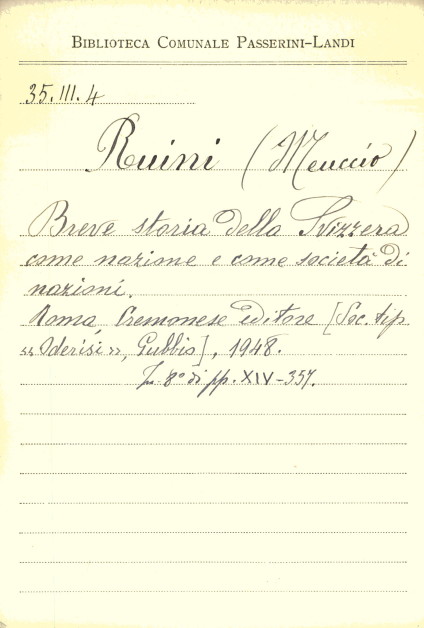 BIBLIOTECA COMUNALE PASSERINI-LANDI
35.III.4
Ruini (Meuccio)
Breve storia della Svizzera
come nazione e come società di
nazioni.
Roma, Cremonese editore [Soc. tip.
"Oderisi", Gubbio], 1948.
In 8° di pp. XIV-357.